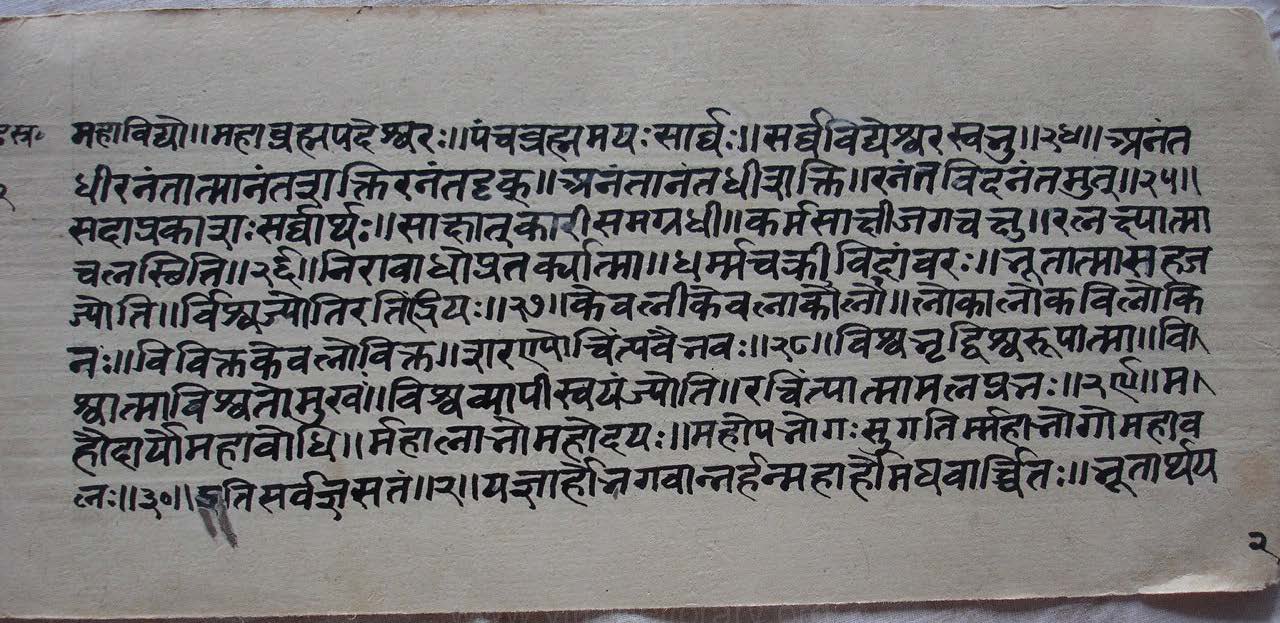 हस्र॰ महाविद्यो॥महाब्रह्मपदेश्वरः॥पंचब्रह्ममयः सार्व्वः॥सर्व्वविद्येश्वरस्वभु॥२४॥अनंत
धीरनंतात्मानंतशक्तिरनंतदृक्॥अनंतानंतधीशक्ति॥रनंतविदनंतमुत्॥२५॥
सदाप्रकाशः सर्व्वार्थः॥साक्षात्कारी समग्रधी॥कर्मसाक्षीजगच्चक्षु॥रलक्ष्यात्मा
चलस्थिति॥२६॥निराबाधोप्रतर्क्यात्मा॥धर्म्मचक्रीविदांवरः॥भूतात्मासहज
ज्योति॥र्विश्वज्योतिरतिंद्रियः॥२७॥केवलीकेवलालोको॥लोकालोकविलोकि
नः॥विविक्तकेवलोविक्त॥शरण्योचिंत्यवैभवः॥२८॥विश्वभृद्विश्वरूपात्मा॥वि
श्वात्माविश्वतोमुखं॥विश्वव्यापीस्वयंज्योति॥रचिंत्यात्मामलप्रभः॥२९॥म
हौदार्योमहाबोधि॥र्महालाभोमहोदयः॥महोपभोगः सुगतिर्म्महाभोगोमहाब
लः॥३०॥इति सर्वज्ञसतं॥२॥यज्ञार्होभगवान्नर्हन्महार्हौमघवार्च्चितः॥भूतार्थय
२
२